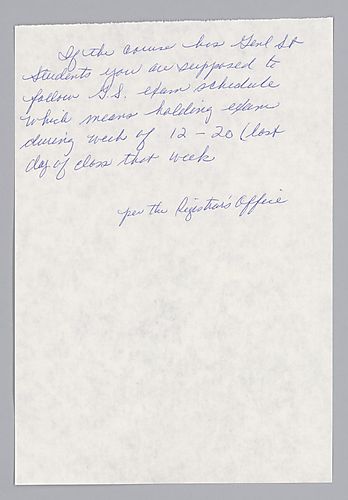 If the course has Genl St
Students you are supposed to
follow G.S. exam schedule
which means holding exam
during week of 12-20 (last
day of class that week
per the Registrar's Office